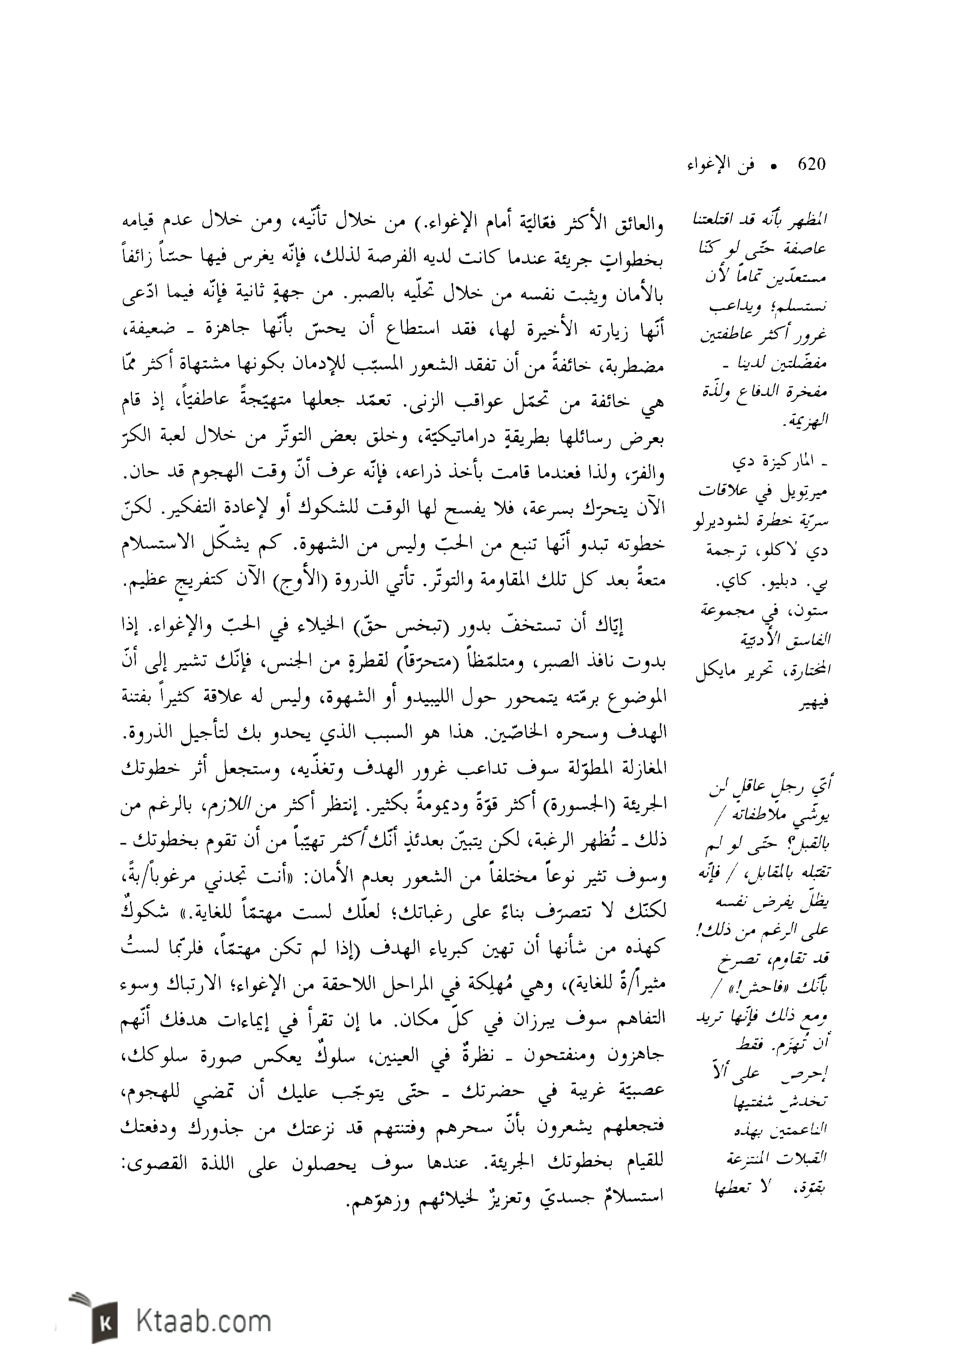 620 • فن الإغواء
والعائق الأكثر فعّاليّة أمام الإغواء.) من خلال تأنّيه، ومن خلال عدم قيامه
بخطواتٍ جريئة عندما كانت لديه الفرصة لذلك، فإنّه يغرس فيها حسّاً زائفاً
بالأمان ويثبت نفسه من خلال تحلّيه بالصبر. من جهةٍ ثانية فإنّه فيما ادّعى
أنّها زيارته الأخيرة لها، فقد استطاع أن يحسّ بأنّها جاهزة ـ ضعيفة،
مضطربة، خائفةً من أن تفقد الشعور المسبّب للإدمان بكونها مشتهاة أكثر ممّا
هي خائفة من تحمّل عواقب الزنى. تعمّد جعلها متهيّجةً عاطفيّاً، إذ قام
بعرض رسائلها بطريقةٍ دراماتيكيّة، وخلق بعض التوتّر من خلال لعبة الكرّ
والفرّ، ولذا فعندما قامت بأخذ ذراعه، فإنّه عرف أنّ وقت الهجوم قد حان.
الآن يتحرّك بسرعة، فلا يفسح لها الوقت للشكوك أو لإعادة التفكير. لكنّ
خطوته تبدو أنّها تنبع من الحبّ وليس من الشهوة. كم يشكّل الاستسلام
متعةً بعد كل تلك المقاومة والتوتّر. تأتي الذروة (الأوج) الآن كتفريجٍ عظيم.
إيّاك أن تستخفّ بدور (تبخس حقّ) الخيلاء في الحبّ والإغواء. إذا
بدوت نافذ الصبر، ومتلمّظاً (متحرّقاً) لقطرةٍ من الجنس، فإنّك تشير إلى أنّ
الموضوع برمّته يتمحور حول الليبيدو أو الشهوة، وليس له علاقة كثيراً بفتنة
الهدف وسحره الخاصّين. هذا هو السبب الذي يحدو بك لتأجيل الذروة.
المغازلة المطوّلة سوف تداعب غرور الهدف وتغذّيه، وستجعل أثر خطوتك
الجريئة (الجسورة) أكثر قوّةً وديمومةً بكثير. إنتظر أكثر من اللازم، بالرغم من
ذلك ـ تُظهر الرغبة، لكن يتبيّن بعدئذٍ أنّك أكثر تهيّباً من أن تقوم بخطوتك ـ
وسوف تثير نوعاً مختلفاً من الشعور بعدم الأمان: «أنت تجدني مرغوباً/بةً،
لكنّك لا تتصرّف بناءً على رغباتك؛ لعلّك لست مهتمّاً للغاية.» شكوكٌ
كهذه من شأنها أن تهين كبرياء الهدف (إذا لم تكن مهتمّاً، فلربّما لستُ
مثيراً/ةً للغاية)، وهي مُهلِكة في المراحل اللاحقة من الإغواء؛ الارتباك وسوء
التفاهم سوف يبرزان في كلّ مكان. ما إن تقرأ في إيماءات هدفك أنّهم
جاهزون ومنفتحون ـ نظرةٌ في العينين، سلوكٌ يعكس صورة سلوكك،
عصبيّة غريبة في حضرتك ـ حتّى يتوجّب عليك أن تمضي للهجوم،
فتجعلهم يشعرون بأنّ سحرهم وفتنتهم قد نزعتك من جذورك ودفعتك
للقيام بخطوتك الجريئة. عندها سوف يحصلون على اللذة القصوى:
استسلامٌ جسديّ وتعزيزٌ لخيلائهم وزهوّهم.
المظهر بأنّه قد اقتلعتنا
عاصفة حتّى لو كنّا
مستعدّين تماماً لأن
نستسلم؛ ويداعب
غرور أكثر عاطفتين
مفضّلتين لدينا ـ
مفخرة الدفاع ولذّة
الهزيمة.
ـ الماركيزة دي
ميرتويل في علاقات
سريّة خطرة لشوديرلو
دي لاكلو، ترجمة
بي. دبليو. كاي.
ستون، في مجموعة
الفاسق الأدبيّة
المختارة، تحرير مايكل
فيهير
أيّ رجلٍ عاقلٍ لن
يوشّي ملاطفاته /
بالقبل؟ حتّى لو لم
تقبّله بالمقابل، / فإنّه
يظلّ يفرض نفسه
على الرغم من ذلك!
قد تقاوم، تصرخ
بأنّك «فاحش!» /
ومع ذلك فإنّها تريد
أن تُهزَم. فقط
إحرص على ألاّ
تخدش شفتيها
الناعمتين بهذه
القبلات المنتزعة
بقوّة، لا تعطها
Ktaab.com